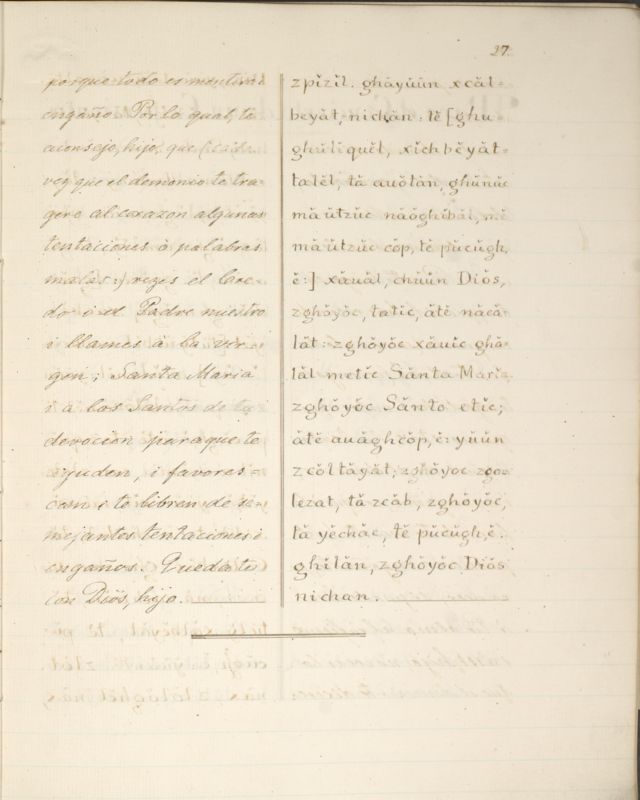 27.
porque todo es mentira i
engaño. Por lo qual, te
aconsejo, hijo, que (cada
vez que el demonio te tra=
gere al corazon algunas
tentaciones ò palabras
malas:) rezes el Cre=
do i el Padre nuestro
i llames à la Vir=
gen; Santa Maria
i à los Santos de tu
devocion paraque te
ajuden, i favores=
can i te libren de se=
mejantes tentaciones i
engaños. Quedate
con Diös, hijo.
zpĭzĭl. ghăyŭŭn xcăl=
beyăt, nichăn: tĕ [ghu=
ghŭlĭquĕl, xĭchbĕyăt=
talĕl, tă auŏtăn, ghŭnŭc
mă ŭtzŭc năŏghĭbăl, mĕ
mă ŭtzŭc cŏp, tĕ pŭcŭgh,
ĕ:] xăuăl, chŭŭn Diŏs,
zghŏyŏc, tatĭc, ătĕ năcă=
lăt: zghŏyŏc xăuĭc ghă=
lăl metĭc Sănta Maria
zghŏyŏc Sănto etĭc;
ătĕ auăghcŏp, ĕ: yŭŭn
zcŏltăyăt; zghŏyoc zgo=
lezat, tă zcăb, zghŏyŏc,
tă yĕchăc, tĕ pŭcŭgh, ĕ.
ghĭlăn, zghŏyŏc Diŏs
nichan.